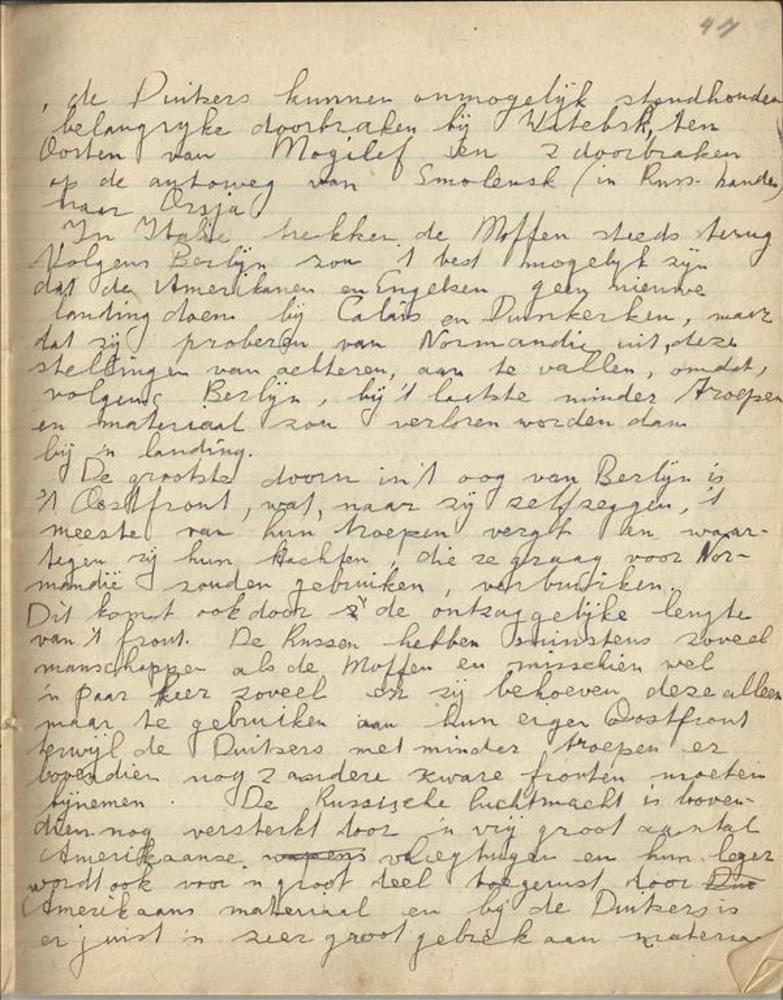 47
, de Duitsers kunnen onmogelijk standhouden
belangryke doorbraken bij Witebsk, ten
Oosten van Mogilef en 2 doorbraken
op de autoweg van Smolensk (in Russ. handen)
naar Orsja.
In Italië trekken de Moffen steeds terug
Volgens Berlijn zou 't best mogelyk zijn
dat de Amerikanen en Engelsen geen nieuwe
landing doen bij Calais en Duinkerken, maar
dat zij proberen van Normandie uit, deze
stellingen van achteren, aan te vallen, omdat,
volgens Berlijn, bij 't laatste minder troepen
en materiaal zou verloren worden dan
bij 'n landing.
De grootste doorn in 't oog van Berlijn is
't Oostfront, wat, naar zij zelf zeggen, 't
meeste van hun troepen vergt en waar-
tegen zij hun krachten, die ze graag voor Nor-
mandië zouden gebruiken, verbruiken.
Dit komt ook door de ontzaggelijke lengte
van 't front. De Russen hebben minstens zoveel
manschappen als de Moffen en misschien wel
'n paar keer zoveel en zij behoeven deze alleen
maar te gebruiken aan hun eigen Oostfront
terwijl de Duitsers met minder troepen er
bovendien nog 2 andere zware fronten moeten
bijnemen. De Russische luchtmacht is boven-
dien nog versterkt door 'n vrij groot aantal
Amerikaanse wapens vliegtuigen en hun leger
wordt ook voor 'n groot deel toegerust door
Amerikaans materiaal en bij de Duitsers is
er juist 'n zeer groot gebrek aan materia